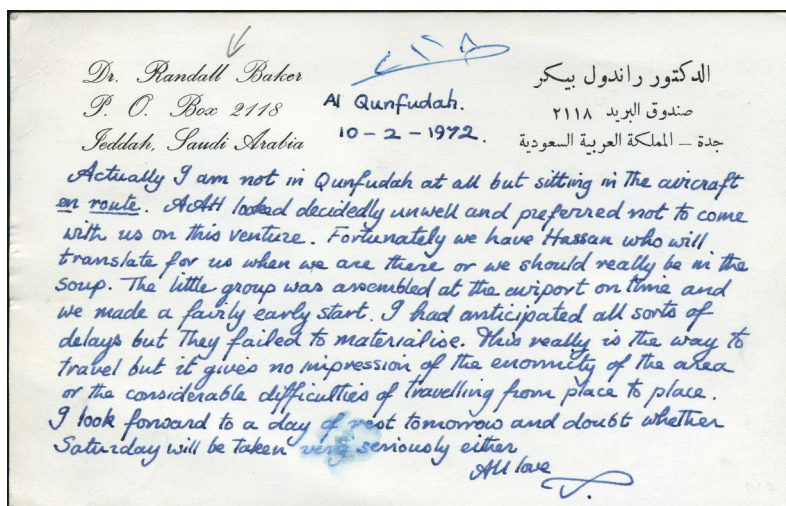 Dr. Randall Baker
P. O. Box 2118
Jeddah, Saudi Arabia
الدكتور راندول بيكر
صندوق البريد ٢١١٨
جدة – المملكة العربية السعودية
Al Qunfudah.
10-2-1972.
Actually I am not in Qunfudah at all but sitting in the aircraft
en route. AAH looked decidedly unwell and preferred not to come
with us on this venture. Fortunately we have Hassan who will
translate for us when we are there or we should really be in the
soup. The little group was assembled at the airport on time and
we made a fairly early start. I had anticipated all sorts of
delays but they failed to materialise. This really is the way to
travel but it gives no impression of the enormity of the area
or the considerable difficulties of travelling from place to place.
I look forward to a day of rest tomorrow and doubt whether
Saturday will be taken very seriously either
All love